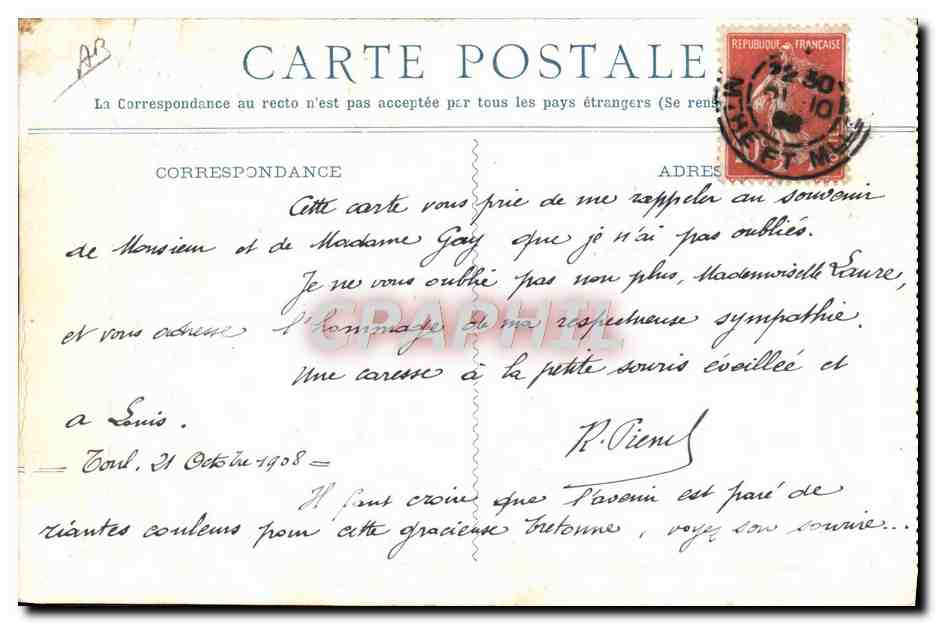 AB
CARTE POSTALE
La Correspondance au recto n'est pas acceptée par tous les pays étrangers (Se rens
REPUBLIQUE FRANÇAISE
22 30
21 10
08
MTHE ET MLLE
CORRESPONDANCE
ADRES
Cette carte vous prie de me rappeler au souvenir
de Monsieur et de Madame Gay que je n'ai pas oubliés.
Je ne vous oublie pas non plus, Mademoiselle Laure,
et vous adresse l'hommage de ma respectueuse sympathie.
GRAPHIL
Une caresse à la petite souris éveillée et
a Louis.
R. Pienel
Toul, 21 Octobre 1908 =
Il faut croire que l'avenir est paré de
riantes couleurs pour cette gracieuse bretonne, voyez son sourire...